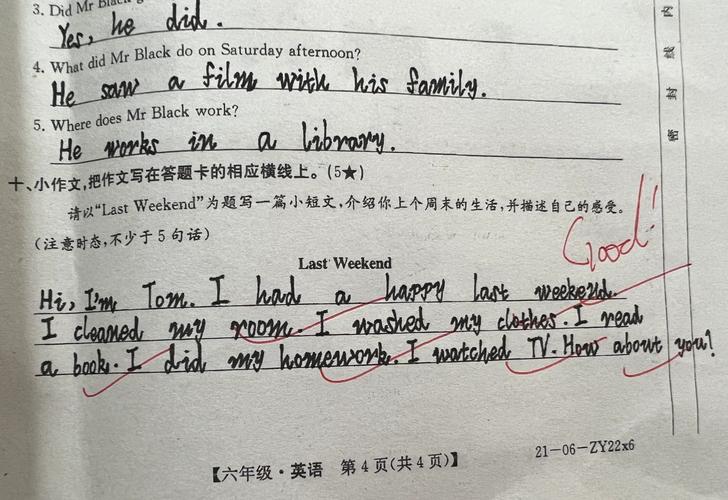 3. Did Mr Black
Yes, he did.
4. What did Mr Black do on Saturday afternoon?
He saw a film with his family.
5. Where does Mr Black work?
He works in a library.
十、小作文,把作文写在答题卡的相应横线上。(5★)
请以“Last Weekend”为题写一篇小短文,介绍你上个周末的生活,并描述自己的感受。
(注意时态,不少于5句话)
Good!
Last Weekend
Hi, I'm Tom. I had a happy last weekend.
I cleaned my room. I washed my clothes. I read
a book. I did my homework. I watched TV. How about you?
【六年级·英语 第4页(共4页)】
21-06-ZY22x6
线
封
密